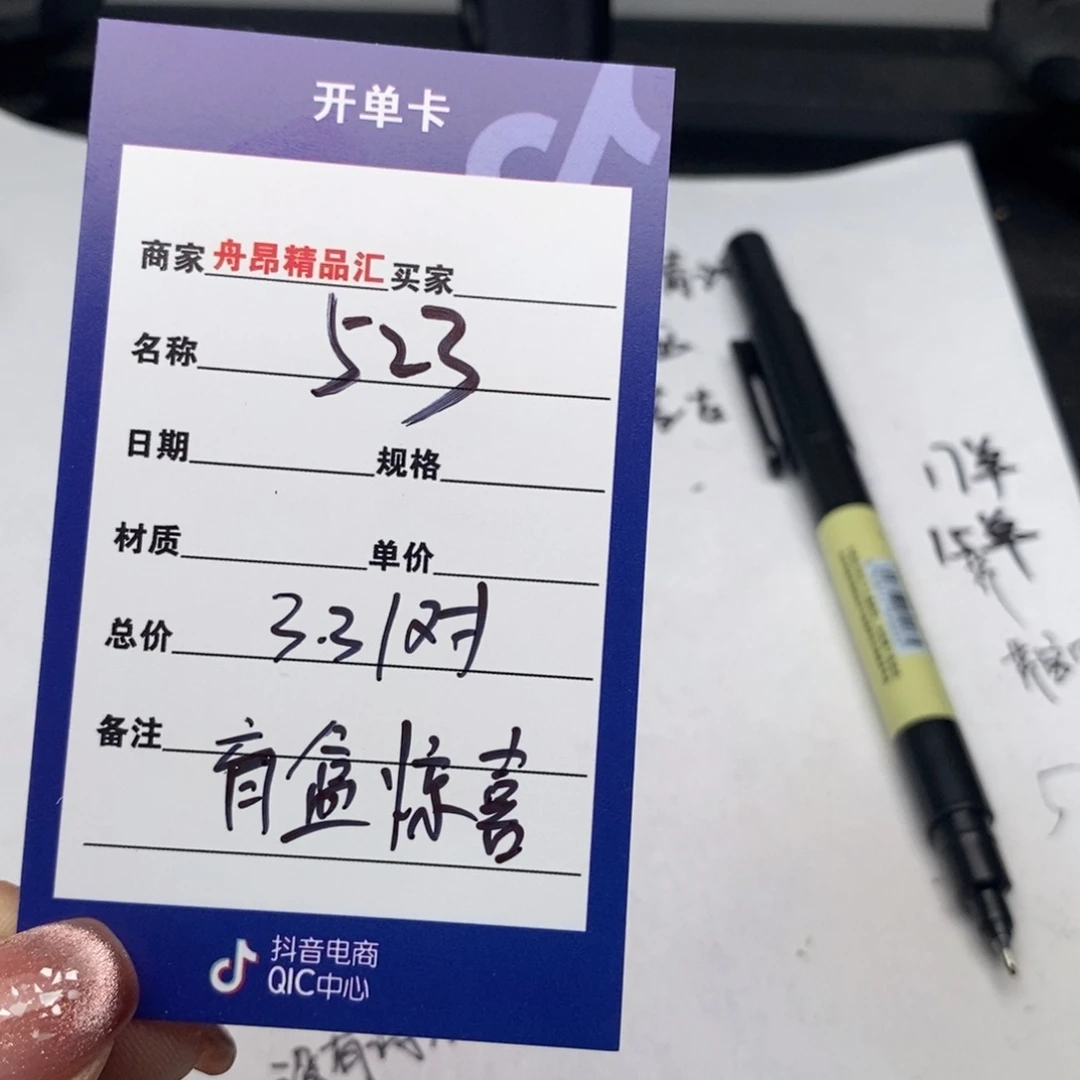 开单卡
商家舟昂精品汇买家
名称 523
日期 规格
材质 单价
总价 3.3/对
备注 盲盒惊喜
抖音电商
QIC中心
17单
15单